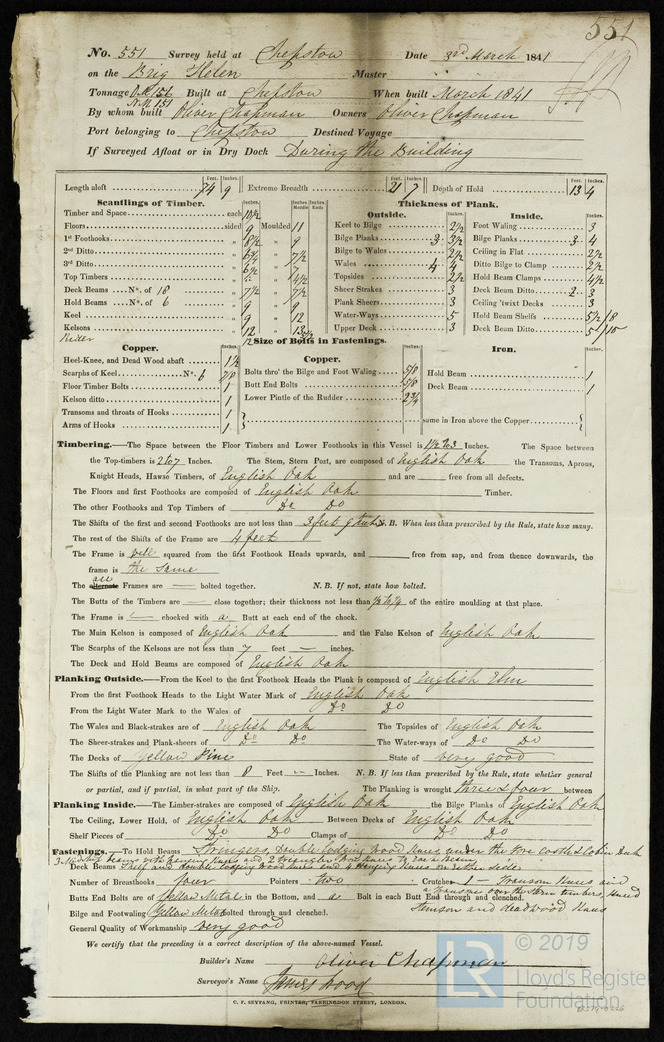 551
No. 551 Survey held at Chepstow Date 3rd March 1841
on the Brig Helen Master
Tonnage O.M 156 Built at Chepstow When built March 1841
N.M 151
By whom built Oliver Chapman Owners Oliver Chapman
Port belonging to Chepstow Destined Voyage
If Surveyed Afloat or in Dry Dock During the Building
Feet. Inches. Feet. Inches. Feet. Inches.
Length aloft 74 9 Extreme Breadth 21 7 Depth of Hold 13 4
Scantlings of Timber. Thickness of Plank.
Timber and Space each 10½
Floors sided 9 Moulded 11
1st Foothooks 8½ 9
2nd Ditto 7½
3rd Ditto 6½ 7
Top Timbers 4½
Deck Beams No. of 18 7½ 7½
Hold Beams No. of 6 9 9
Keel 9 12
Kelsons 12
Rider 12
Outside. Inches.
Keel to Bilge 2½
Bilge Planks 3 3½
Bilge to Wales 2½
Wales 4 4
Topsides 2½
Sheer Strakes 3
Plank Sheers 3
Water-Ways 5
Upper Deck 3
Inside. Inches.
Foot Waling 3
Bilge Planks 3 4
Ceiling in Flat 2½
Ditto Bilge to Clamp 2½
Hold Beam Clamps 4½
Deck Beam Ditto 2 3
Ceiling 'twixt Decks 3
Hold Beam Shelfs 5½/8
Deck Beam Ditto 5/10
Size of Bolts in Fastenings.
Copper. Inches. Copper. Iron. Inches.
Heel-Knee, and Dead Wood abaft 1⅛
Scarphs of Keel No. 6 7/8
Floor Timber Bolts 1
Kelson ditto 1
Transoms and throats of Hooks 1
Arms of Hooks 1
Bolts thro' the Bilge and Foot Waling 5/8
Butt End Bolts 5/8
Lower Pintle of the Rudder 2¾
Hold Beam 1
Deck Beam 1
same in Iron above the Copper
Timbering.—The Space between the Floor Timbers and Lower Foothooks in this Vessel is 1½ to 3 Inches. The Space between
the Top-timbers is 2 to 7 Inches. The Stem, Stern Post, are composed of English Oak the Transoms, Aprons,
Knight Heads, Hawse Timbers, of English Oak and are free from all defects.
The Floors and first Foothooks are composed of English Oak Timber.
The other Foothooks and Top Timbers of Do Do
The Shifts of the first and second Foothooks are not less than 3 feet 9 N. B. When less than prescribed by the Rule, state how many.
The rest of the Shifts of the Frame are 4 feet
The Frame is well squared from the first Foothook Heads upwards, and free from sap, and from thence downwards, the
frame is the same
The all alternate Frames are bolted together. N. B. If not, state how bolted.
The Butts of the Timbers are close together; their thickness not less than of the entire moulding at that place.
The Frame is chocked with a Butt at each end of the chock.
The Main Kelson is composed of English Oak and the False Kelson of English Oak
The Scarphs of the Kelsons are not less than 7 feet inches.
The Deck and Hold Beams are composed of English Oak
Planking Outside.—From the Keel to the first Foothook Heads the Plank is composed of English Elm
From the first Foothook Heads to the Light Water Mark of English Oak
From the Light Water Mark to the Wales of Do Do
The Wales and Black-strakes are of English Oak The Topsides of English Oak
The Sheer-strakes and Plank-sheers of Do Do The Water-ways of Do Do
The Decks of Yellow Pine State of very good
The Shifts of the Planking are not less than 8 Feet Inches. N. B. If less than prescribed by the Rule, state whether general
or partial, and if partial, in what part of the Ship. The Planking is wrought three & four between
Planking Inside.—The Limber-strakes are composed of English Oak the Bilge Planks of English Oak
The Ceiling, Lower Hold, of English Oak Between Decks of English Oak
Shelf Pieces of Do Do Clamps of Do Do
Fastenings.—To Hold Beams Stringers, Double lodging Wood Knees, under the Fore Castle & Cabin Deck
3 Midship beams with hanging Knees and 2 Iron Knees to each Beam
Deck Beams Shelf and double lodging Wood Knees and 4 Hanging Knees on either side
Number of Breasthooks four Pointers two Crutches 1 Transom Knees and
a Transom over the Stern timbers, Kneed
Butts End Bolts are of Yellow Metal in the Bottom, and a Bolt in each Butt End through and clenched.
Bilge and Footwaling Yellow Metal bolted through and clenched. Stemson and deadwood Knees
General Quality of Workmanship very good
We certify that the preceding is a correct description of the above-named Vessel.
Builder's Name Oliver Chapman
Surveyor's Name James Wood
C. F. SEYFANG, PRINTER, FARRINGDON STREET, LONDON.
LR © 2019
Lloyd's Register
Foundation